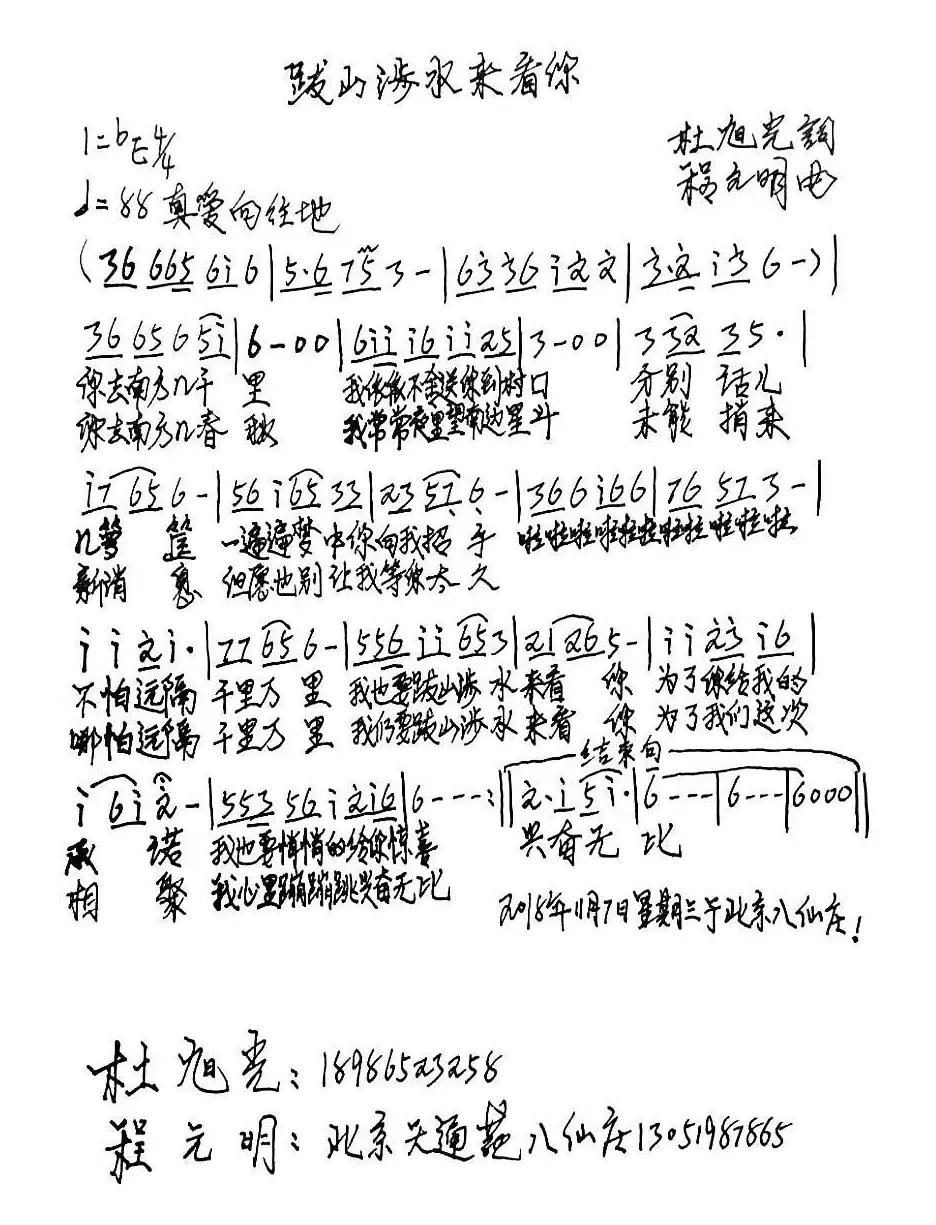 跋山涉水来看你
1=bE4/4
杜旭光詞
程元明曲
♩=88真爱向往地
(36 665 6i 6|5·6 75 3-|63 36 i22|3·2 i3 6-)|
36 65 6 5i|6-00|6ii i6 ii 25|3-00|3 32 35·|
你去南方几千 里 我依依不舍送你到村口 分别 话儿
你去南方几春 秋 我常常夜里望南边星斗 未能 捎来
i7 65 6-|56 i65 33|23 57 6-|366 i66|76 57 3-|
几箩 筐 一遍遍梦中你向我招 手 啦啦啦啦啦啦啦啦啦啦啦
新消 息 但愿也别让我等你太 久
i i 2 i·|77 65 6-|556 ii 653|21 26 5-|i i 23 i6|
不怕远隔 千里万 里 我也要跋山涉 水 来看 你 为了你给我的
哪怕远隔 千里万 里 我们要跋山涉 水 来看 你 为了我们这次
结束句
i 6i 2-|553 56 i 2i6|6---:‖2·i 5i·|6---|6---|6000‖
承 诺 我也要悄悄的给你惊喜 兴奋无 比
相 聚 我心里蹦蹦跳兴奋无比
2018年11月7日星期三于北京八仙庄!
杜旭光:18986523258
程元明:北京天通苑八仙庄13051987865